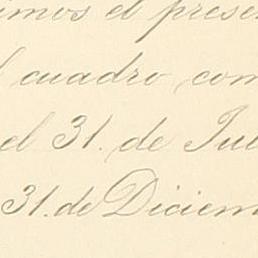 imos el presen
l cuadro com
el 31. de Jul
31. de Diciem